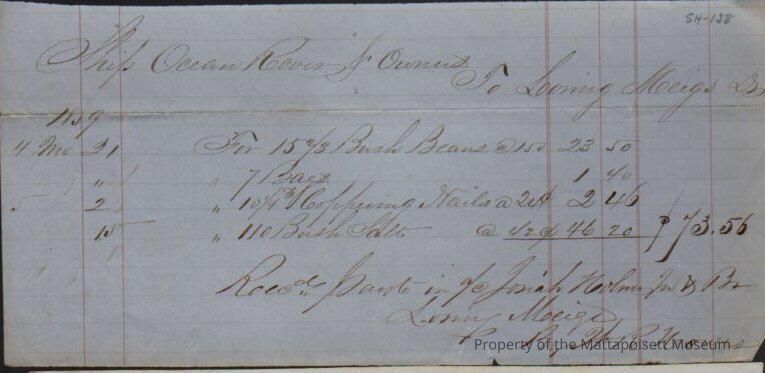 SH-128
Ship Ocean Rover & Owners
To Loring Meigs Dr
1859
4 Mo 21 For 15 2/3 Bush Beans @ 150 23 50
" " 7 Bags 1 40
5 2 " 10 1/4 lb Coppering Nails @ 24¢ 2 46
15 " 110 Bush Salt @ 42¢ 46 20 $73.56
Recd Paymt in a/c Josiah Holmes Jr & Br
Loring Meigs
Property of the Mattapoisett Museum